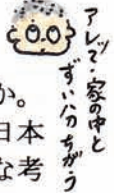 アレッ・家の中と
ずい分ちがう
か。
日本
な考